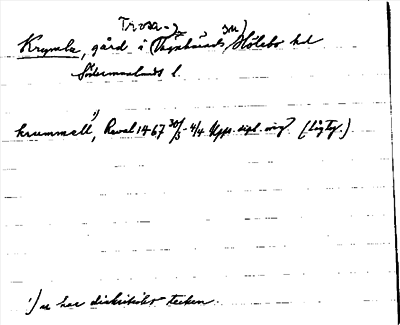 Trosa-
Krymla, gård i (Vagnhärads sn) Hölebo hd
Södermanlands l.
krummell¹), Reval 1467 30/3-4/4 Upps. dipl. orig. (lågty.)
¹) u har diakritiskt tecken.